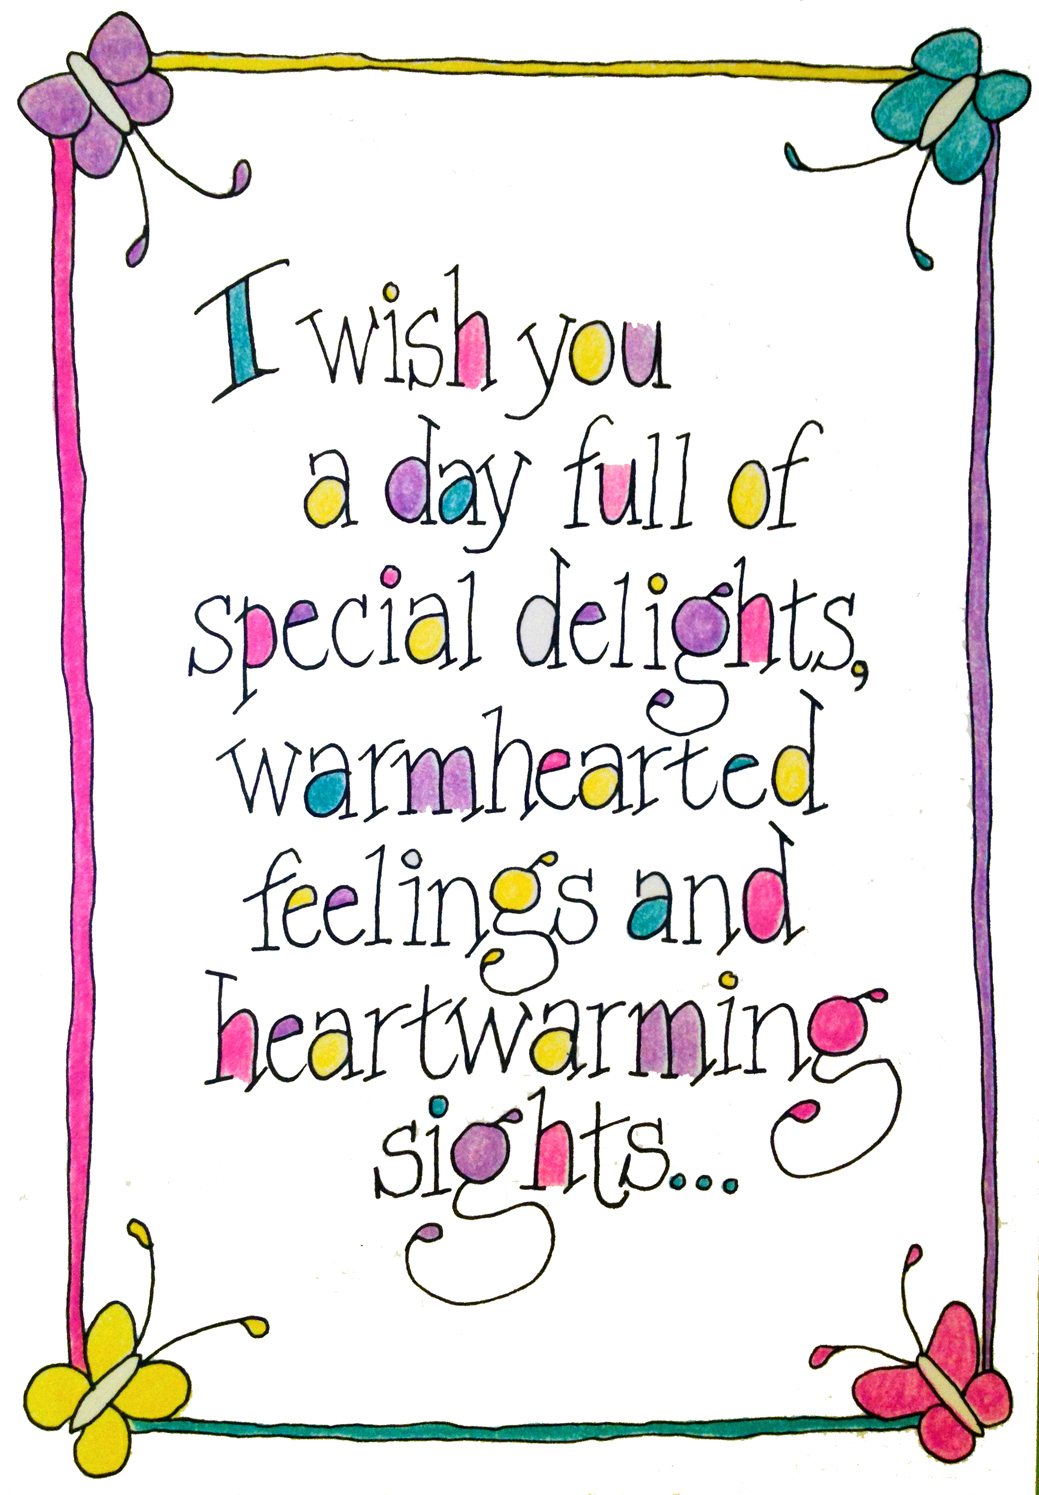 I wish you
a day full of
special delights,
warmhearted
feelings and
heartwarming
sights...